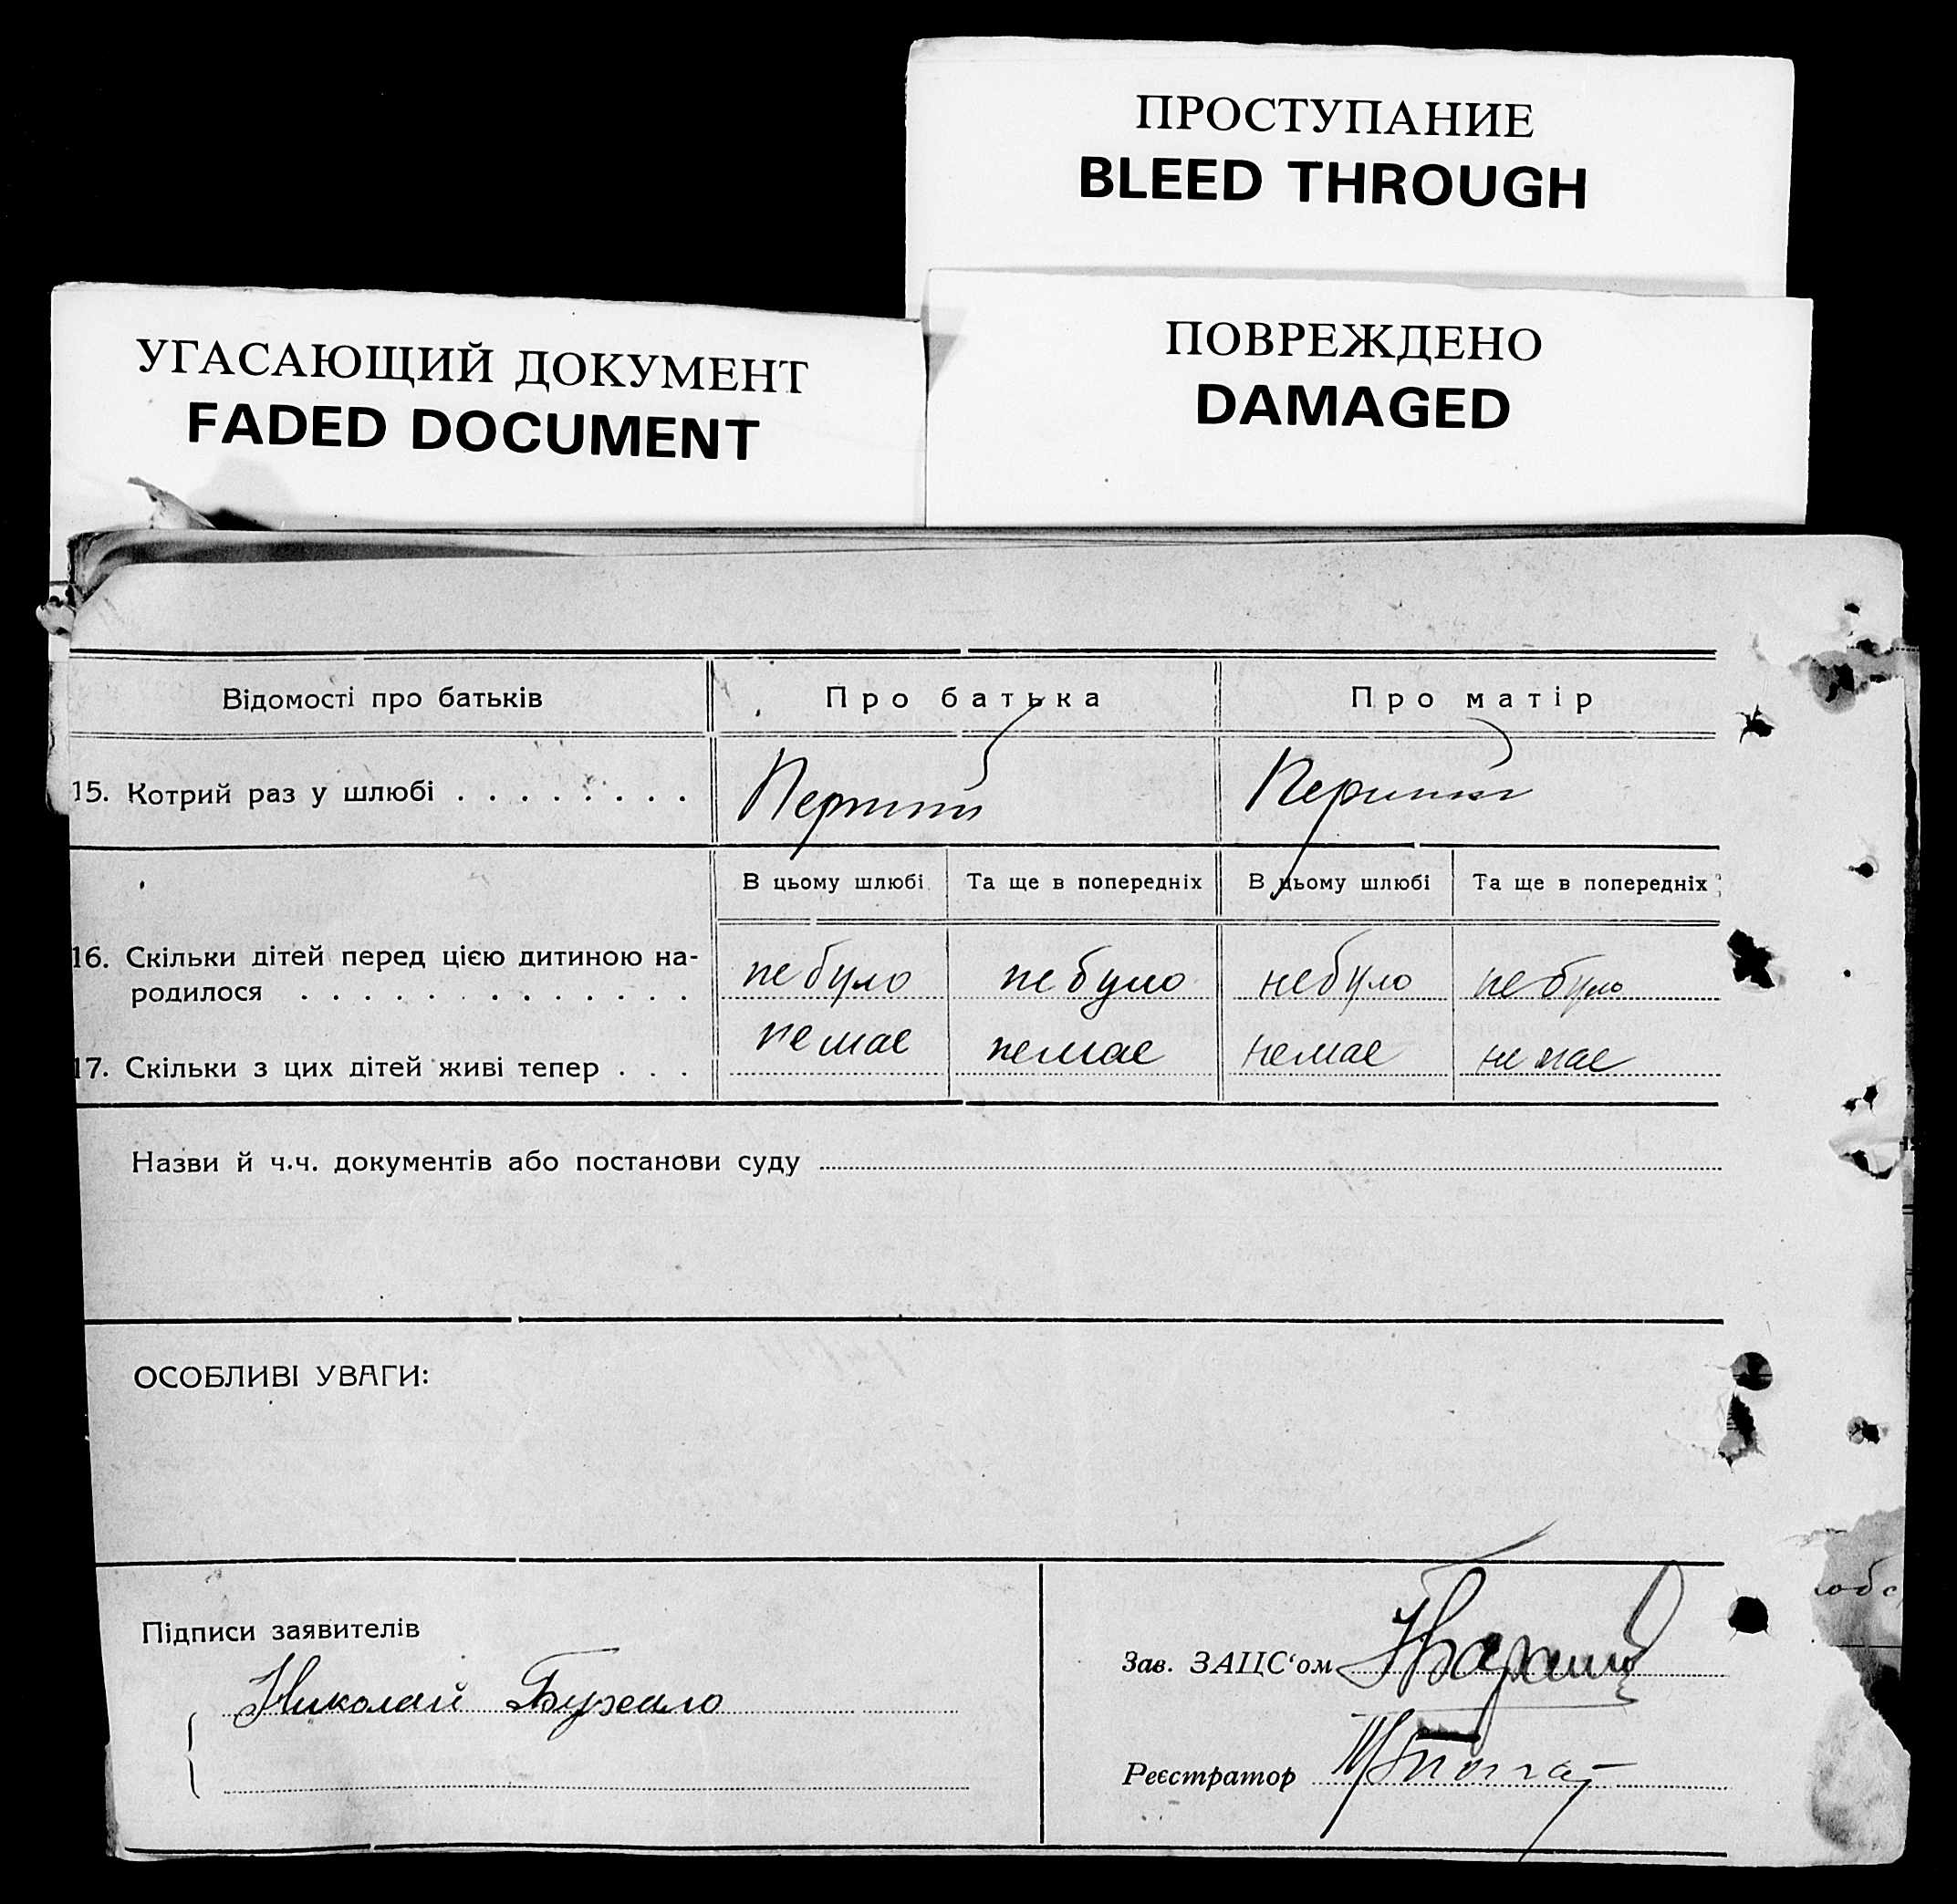 ПРОСТУПАНИЕ
BLEED THROUGH
УГАСАЮЩИЙ ДОКУМЕНТ
FADED DOCUMENT
ПОВРЕЖДЕНО
DAMAGED
Відомості про батьків Про батька Про матір
15. Котрий раз у шлюбі . . . . . . . . Перший Перший
В цьому шлюбі Та ще в попередніх В цьому шлюбі Та ще в попередніх
16. Скільки дітей перед цією дитиною на-
родилося . . . . . . . . . . . . . не було не було не було не було
17. Скільки з цих дітей живі тепер . . . немає немає немає немає
Назви й ч.ч. документів або постанови суду
ОСОБЛИВІ УВАГИ:
Підписи заявителів
Николай
Зав. ЗАЦС‘ом
Реєстратор